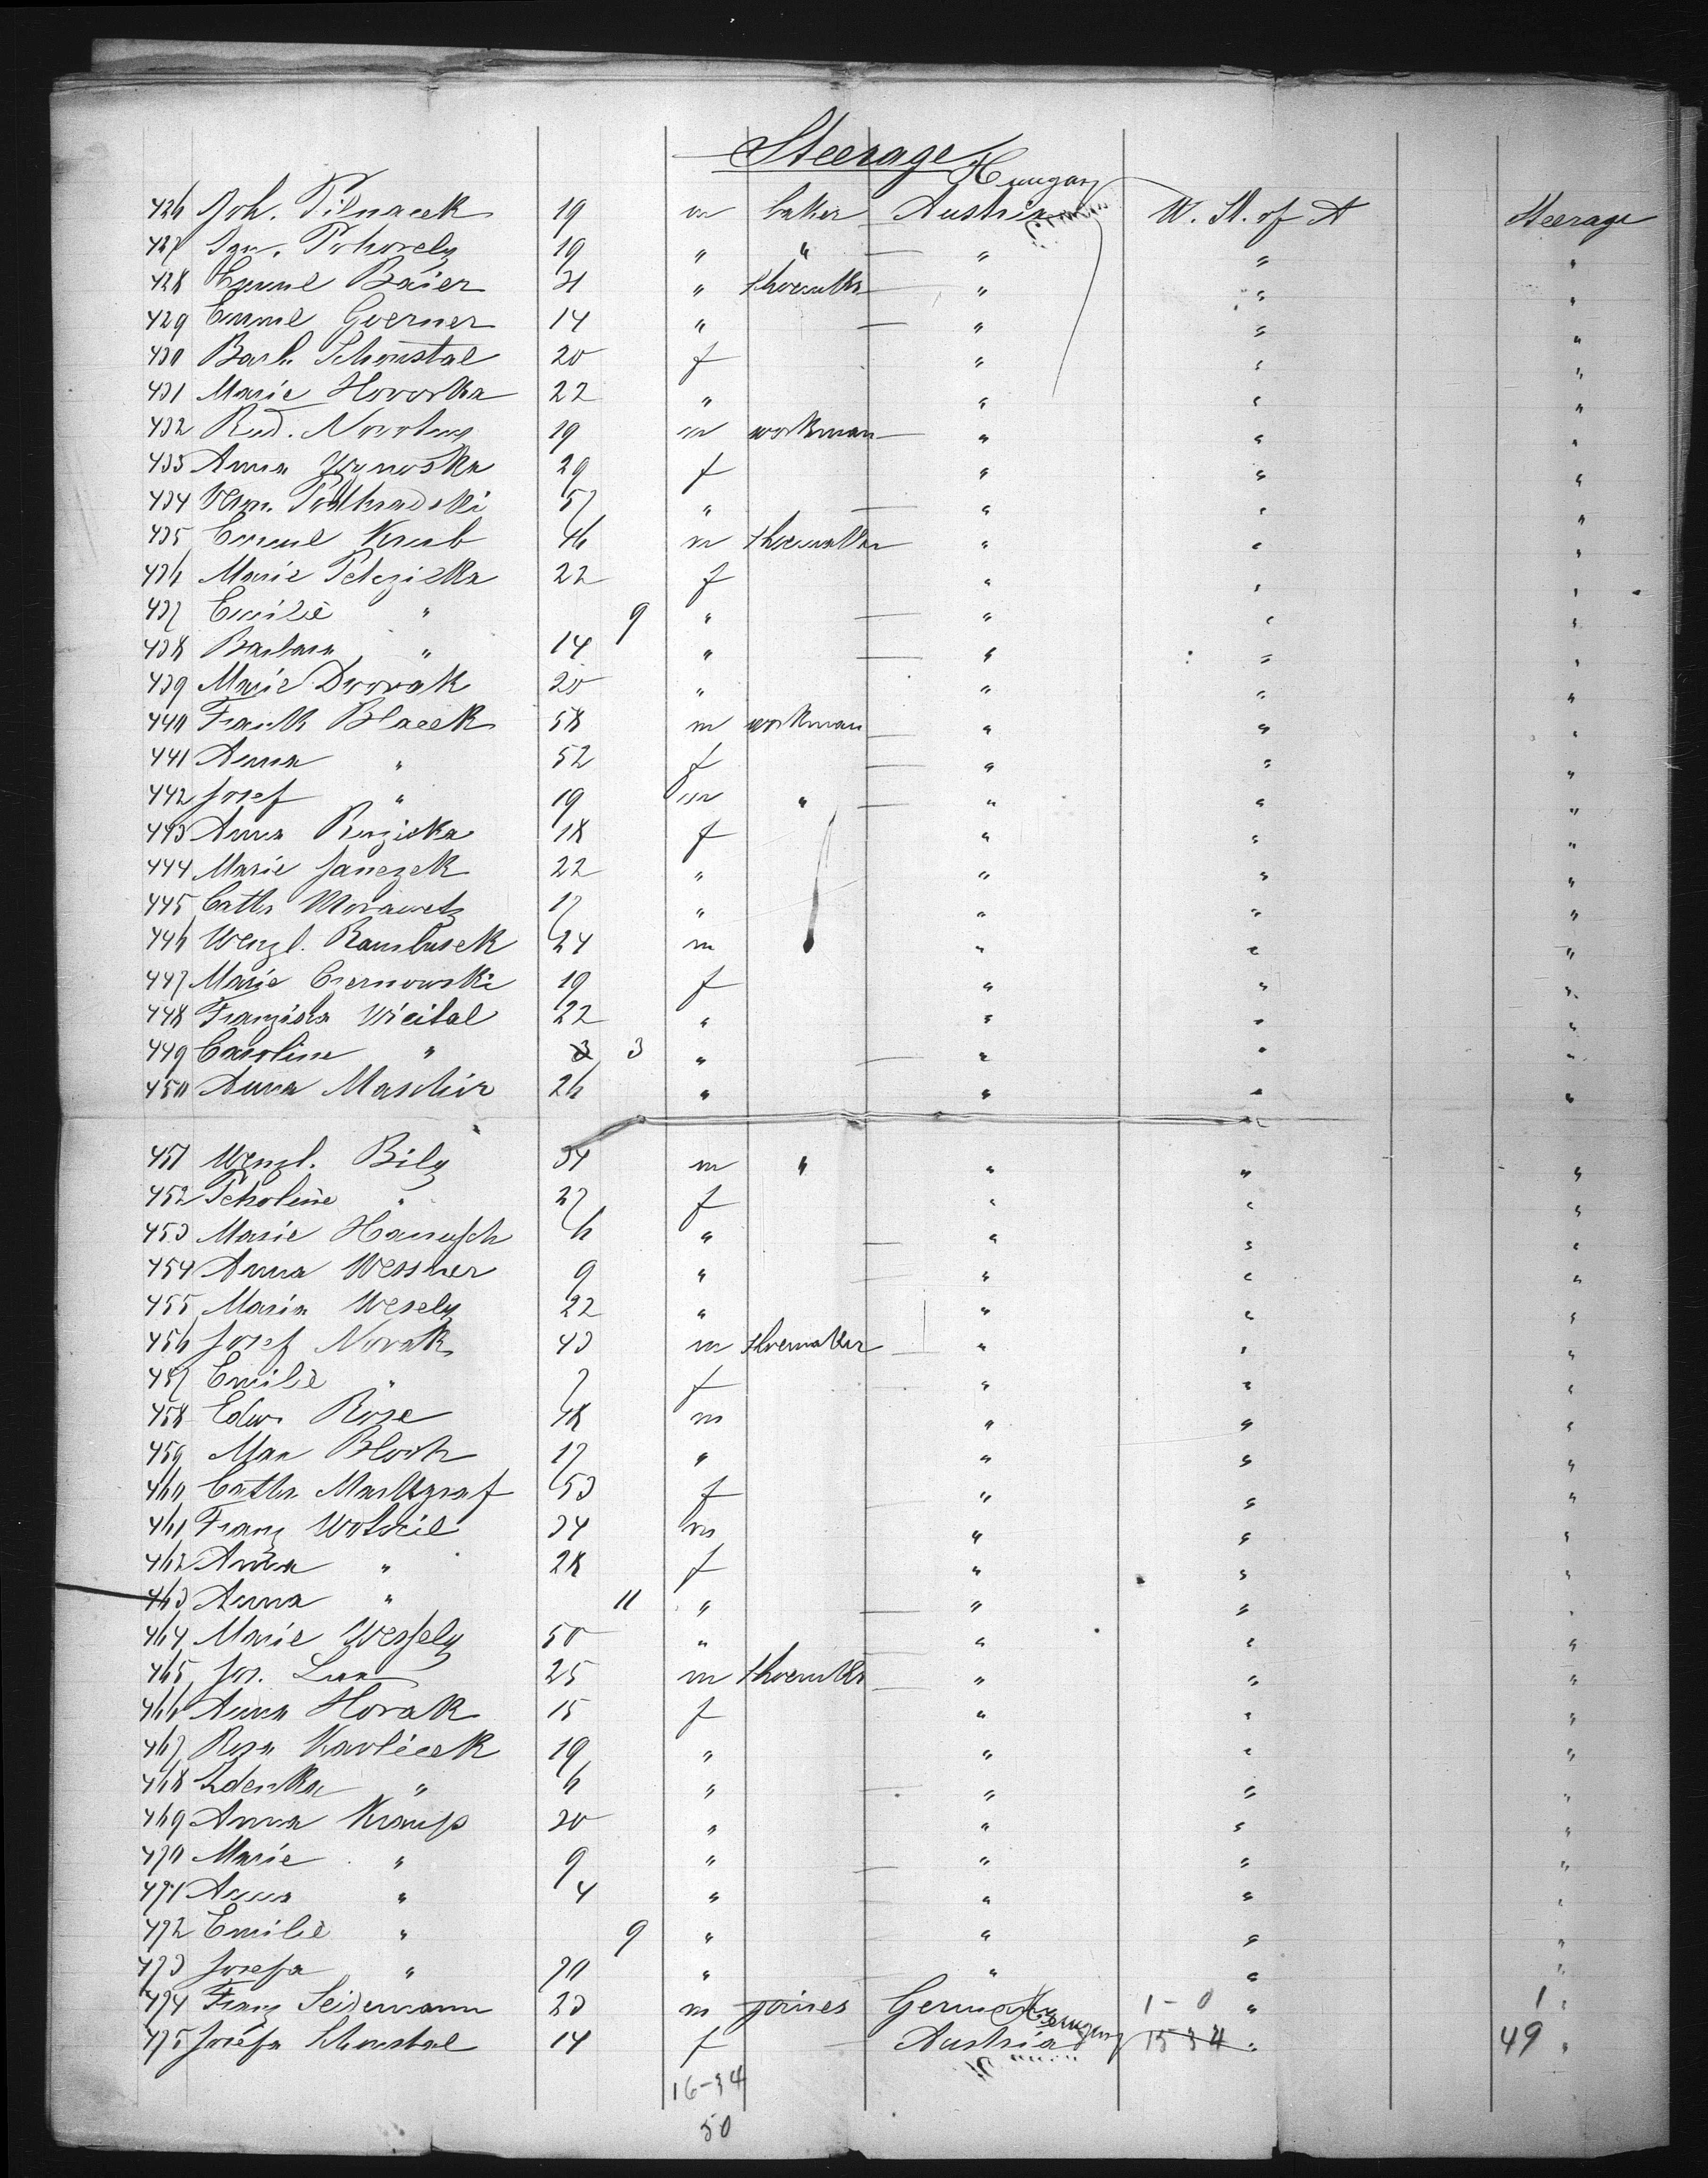 Steerage
Hungary
426 Joh. Pilnacek 19 m baker Austria U. St. of A Steerage
427 Ign. Pohorely 19 " " — " " "
428 Emml Baier 31 " shoemkr — " " "
429 Emml Goerner 14 " — " " "
430 Barb. Schoustal 20 f " " "
431 Marie Hovorka 22 " " " "
432 Rud. Novotny 19 m workman — " " "
433 Anna 29 f " " "
434 57 " — " " "
435 Emml 46 m shoemaker " " "
436 Marie 22 f " " "
437 Emilie " 9 " — " " "
438 Barbara " 14 " — " " "
439 Marie Dworak 20 " " " "
440 Frank Blacek 58 m workman — " " "
441 Anna " 52 f — " " "
442 Josef " 19 m " — " " "
443 Anna Ruzicka 18 f " " "
444 Marie Janezek 22 " " " "
445 Cath. Morawetz 17 " " " "
446 Wenzl. Rambusek 24 m " " "
447 Marie Czernowski 19 f " " "
448 Franziska Wicital 22 " " " "
449 Caroline " 3 3 " — " " "
450 Anna Maschir 26 " " " "
451 Wenzl. Bily 34 m " " " "
452 " 27 f " " "
453 Marie Hanusch 6 " — " " "
454 Anna Wessner 9 " — " " "
455 Maria Wesely 22 " " " "
456 Josef Novak 43 m shoemaker — " " "
457 Emilie " 7 f " " "
458 Edw. Rose 48 m " " "
459 Max Bloch 17 " " " "
460 Cath. Markgraf 53 f " " "
461 Franz Wotocil 34 m " " "
462 Anna " 28 f " " "
463 Anna " 11 " — " " "
464 Marie Wessely 50 " " " "
465 Jos. 25 m shoemkr " " "
466 Anna Horak 15 f " " "
467 Rosa Kavlicek 19 " " " "
468 Zdenka " 6 " — " " "
469 Anna Krauss 30 " " " "
470 Marie " 9 " — " " "
471 Anna " 4 " — " " "
472 Emilie " 9 " " " "
473 Josefa " 70 " — " " "
474 Franz Seidemann 23 m joiner Germany 1 - 0 " 1 "
Hungary
475 Josefa Schoustal 14 f — Austria 15 34 " 49 "
16-34
50